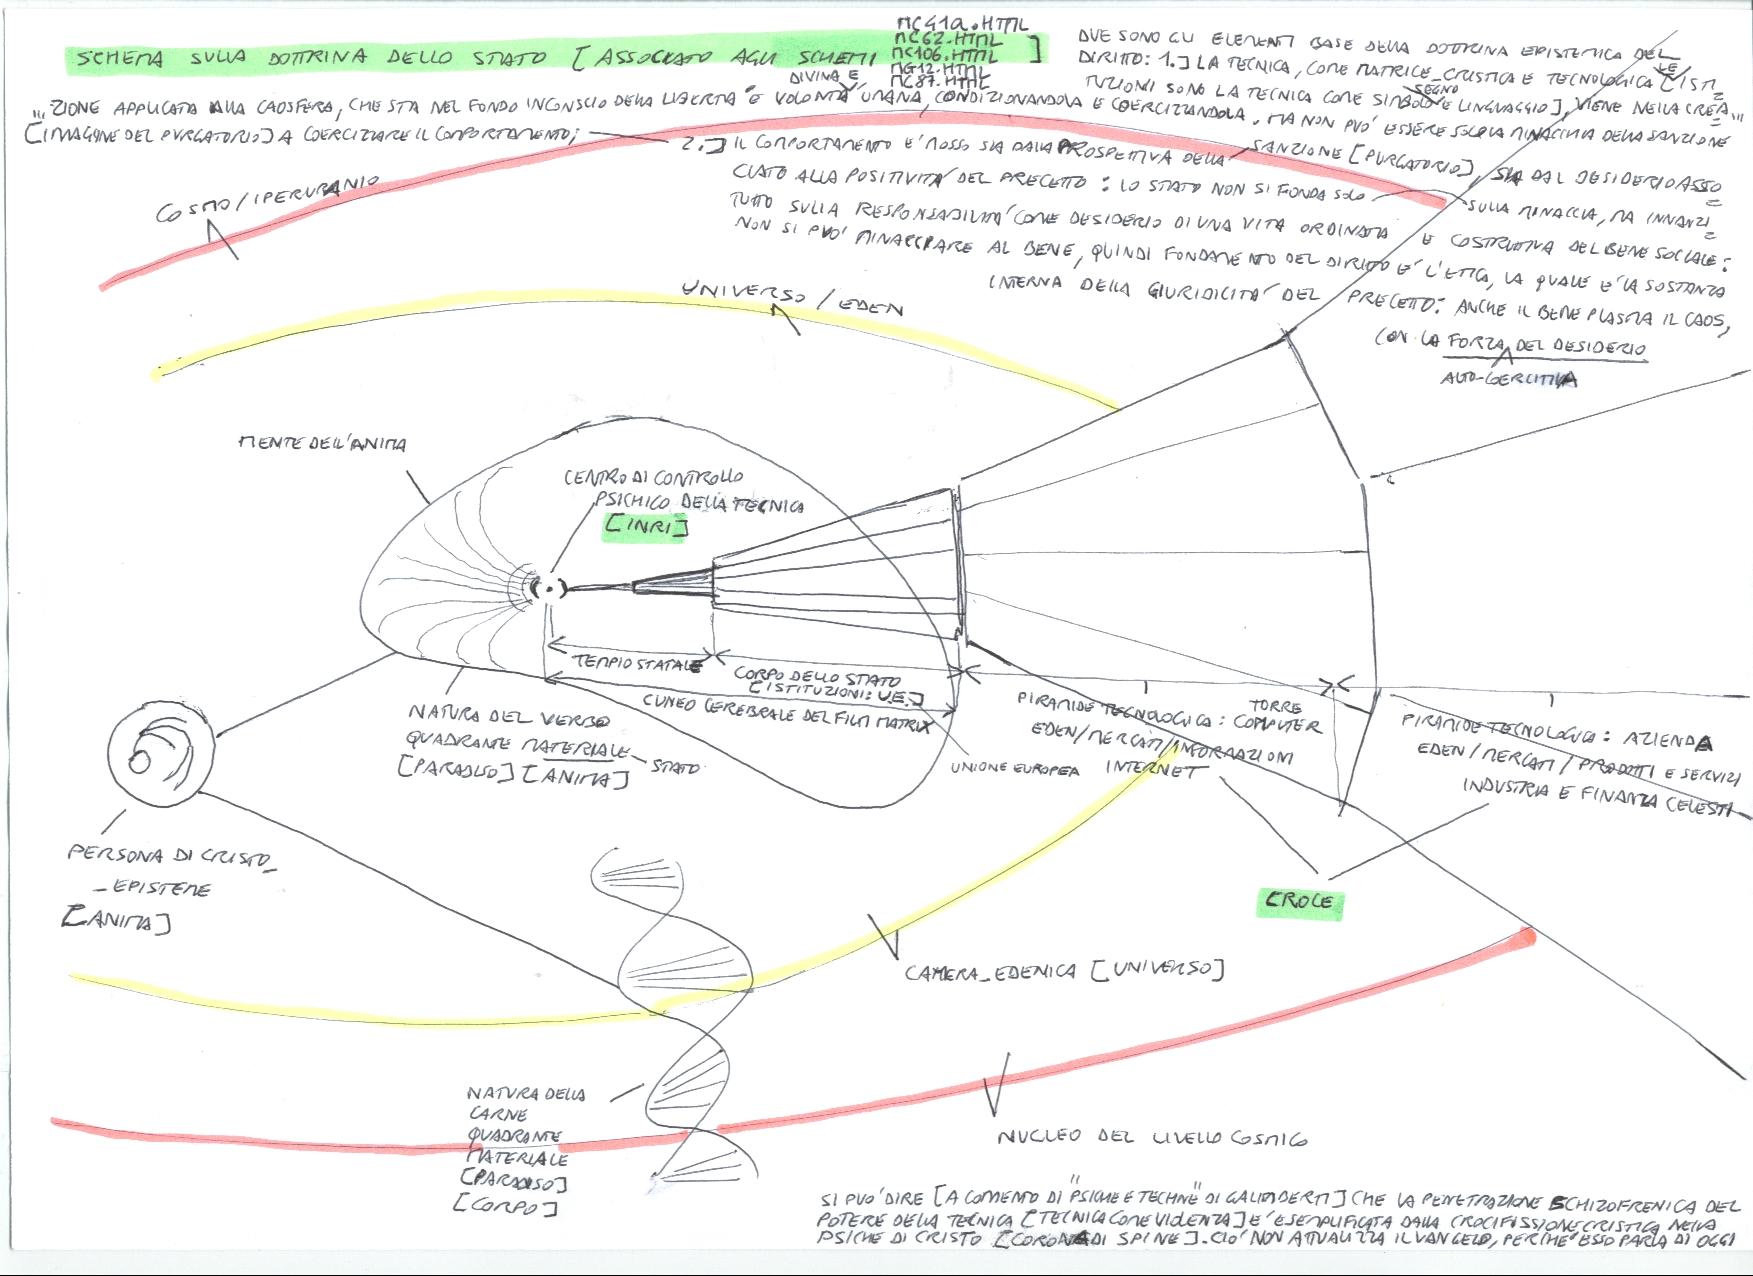 SCHEMA SULLA DOTTRINA DELLO STATO [ASSOCIATO AGLI SCHEMI
MC41a.HTML
MC62.HTML
MC106.HTML
MG12.HTML
MC87.HTML
]
DUE SONO GLI ELEMENTI BASE DELLA DOTTRINA EPISTEMICA DEL
DIRITTO: 1.] LA TECNICA, COME MATRICE_CRISTICA E TECNOLOGICA [LE ISTI=
TUZIONI SONO LA TECNICA COME SIMBOLO SEGNO E LINGUAGGIO], VIENE NELLA CREA=...
...ZIONE APPLICATA ALLA CAOSFERA, CHE STA NEL FONDO INCONSCIO DELLA LIBERTA' E VOLONTA' DIVINA E UMANA, CONDIZIONANDOLA E COERCIZZANDOLA. MA NON PUO' ESSERE SOLO LA MINACCIA DELLA SANZIONE
[IMMAGINE DEL PURGATORIO] A COERCIZZARE IL COMPORTAMENTO;
2.] IL COMPORTAMENTO E' MOSSO SIA DALLA PROSPETTIVA DELLA SANZIONE [PURGATORIO], SIA DAL DESIDERIO ASSO=
CIATO ALLA POSITIVITA' DEL PRECETTO: LO STATO NON SI FONDA SOLO SULLA MINACCIA, MA INNANZI=
TUTTO SULLA RESPONSABILITA' COME DESIDERIO DI UNA VITA ORDINATA E COSTRUTIVA DEL BENE SOCIALE:
NON SI PUO' MINACCIARE AL BENE, QUINDI FONDAMENTO DEL DIRITTO E' L'ETICA, LA QUALE E' LA SOSTANZA
INTERNA DELLA GIURIDICITA' DEL PRECETTO: ANCHE IL BENE PLASMA IL CAOS,
CON LA FORZA DEL DESIDERIO
AUTO-COERCITIVA
COSMO/IPERURANIO
UNIVERSO/EDEN
MENTE DELL'ANIMA
CENTRO DI CONTROLLO
PSICHICO DELLA TECNICA
[INRI]
TEMPIO STATALE
CORPO DELLO STATO
[ISTITUZIONI: U.E.]
CUNEO CEREBRALE DEL FILM MATRIX
NATURA DEL VERBO
QUADRANTE MATERIALE
[PARADISO] [ANIMA]
STATO
UNIONE EUROPEA
PIRAMIDE TECNOLOGICA: COMPUTER
EDEN/MERCATI/INFORMAZIONI
INTERNET
TORRE
PIRAMIDE TECNOLOGICA: AZIENDA
EDEN/MERCATI/PRODOTTI E SERVIZI
INDUSTRIA E FINANZA CELESTI
CROCE
PERSONA DI CRISTO_
_EPISTEME
[ANIMA]
CAMERA_EDENICA [UNIVERSO]
NATURA DELLA
CARNE
QUADRANTE
MATERIALE
[PARADISO]
[CORPO]
NUCLEO DEL LIVELLO COSMICO
SI PUO' DIRE [A COMMENTO DI "PSICHE E TECHNE" DI GALIMBERTI] CHE LA PENETRAZIONE SCHIZOFRENICA DEL
POTERE DELLA TECNICA [TECNICA COME VIOLENZA] E' ESEMPLIFICATA DALLA CROCIFISSIONE CRISTICA NELLA
PSICHE DI CRISTO [CORONA DI SPINE]. CIO' NON ATTUALIZZA IL VANGELO, PERCHE' ESSO PARLA DI OGGI